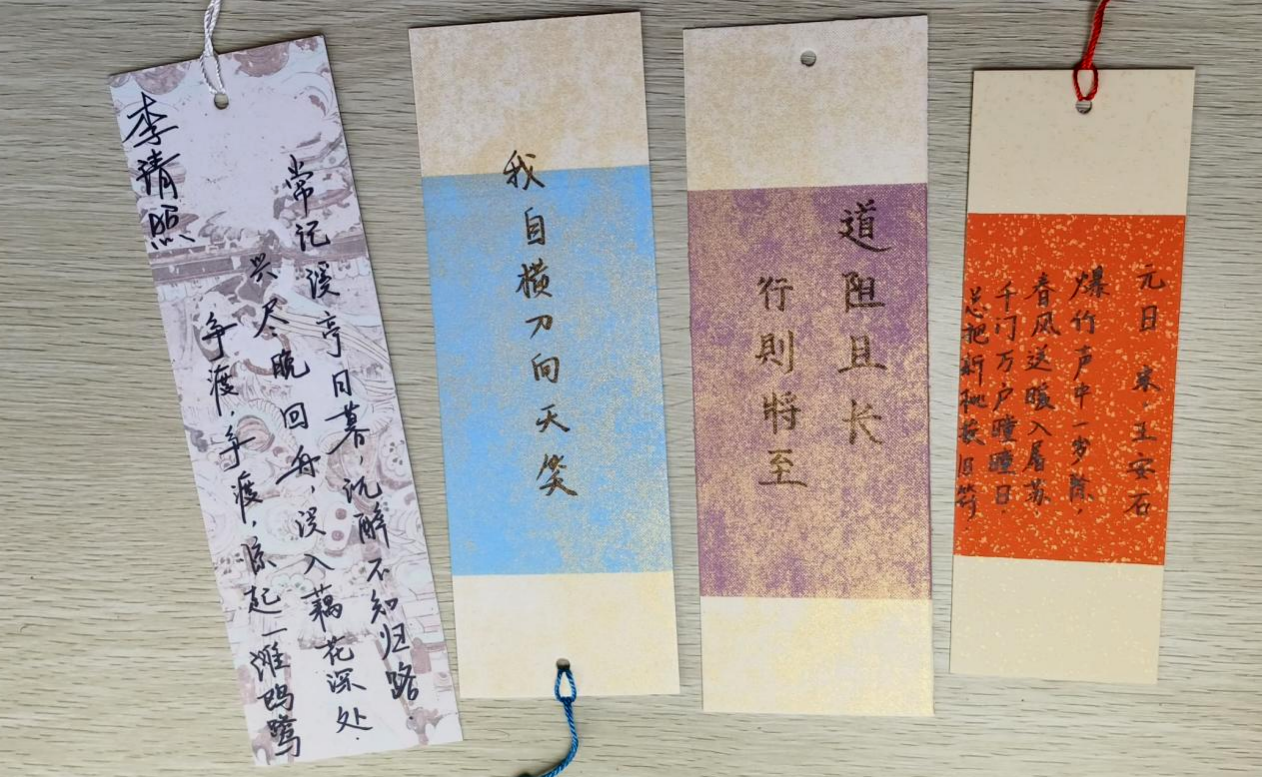 常记溪亭日暮，沉醉不知归路.
兴尽晚回舟，误入藕花深处.
争渡，争渡，惊起一滩鸥鹭
李清照
我自横刀向天笑
道阻且长
行則將至
元日 宋.王安石
爆竹声中一岁除，
春风送暖入屠苏
千门万户曈曈日.
总把新桃换旧符